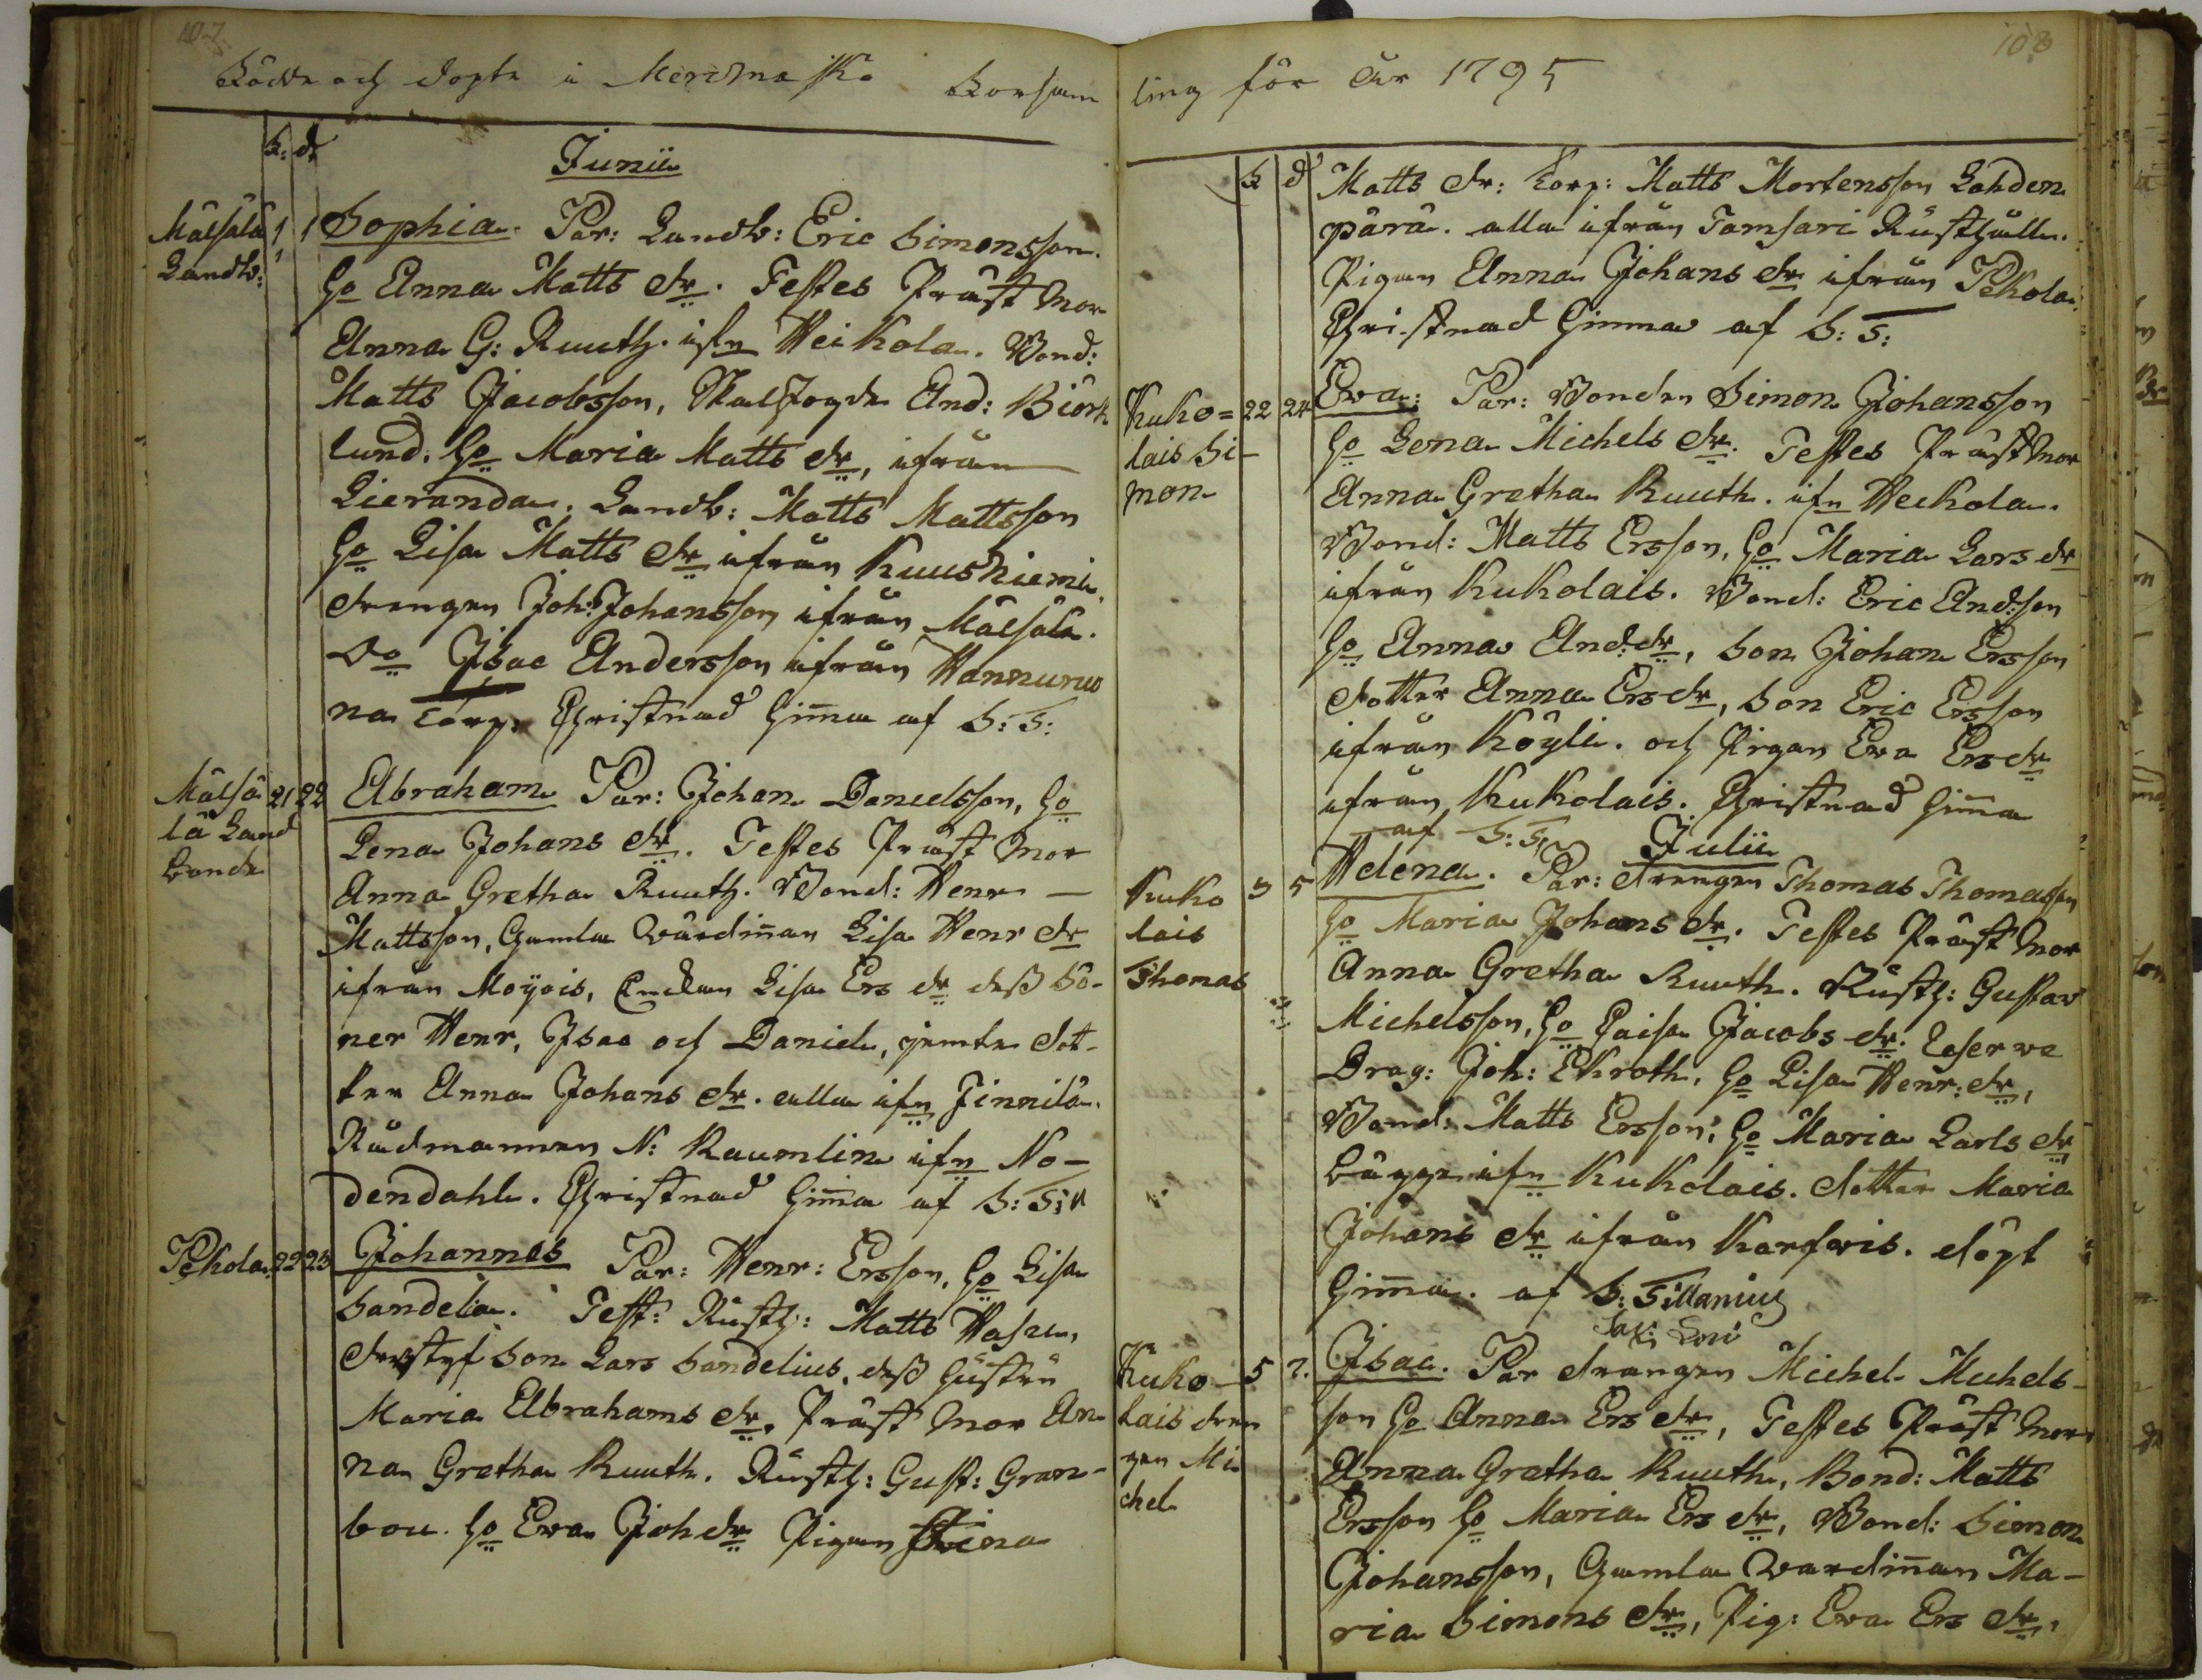 107
Födde och döpte i Merimasko Försam
F: D:
Junii
Mälsälä 1 1 Sophia. Par: Landb: Eric Simonsson.
Landb: Ho Anna Matts dr. Testes Präst Mor
Anna G: Ruuth. ifn Heikola. Bond:
Matts Jacobsson, And: Biörk
lund. Ho Maria Matts dr, ifrån
Lieranda. Landb: Matts Mattsson
Ho Lisa Matts dr ifrån Kuuskiemi.
drengen Joh: Johansson ifrån Mälsälä.
Do Isac Andersson ifrån Hannunu
na Torp. Christnad Hema af S: T:
Mälsä 21 22 Abraham Par: Johan Danielsson, Ho
lä Land Lena Johans dr. Testes Präst Mor
bonde Anna Gretha Ruuth. Bond: Henr
Mattsson, Gamla Värdinnan Lisa Henr dr
ifrån Moÿois, Enckan Lisa Ers dr dess Sö-
ner Henr, Isac och Daniel, jemte dot-
ter Anna Johans dr. alla ifn Finnilä.
Rådmannen N: Raumlin ifn No-
dendahl. Christnad Hema af S: T:
Pekola 22 23 Johannes Par: Henr: Ersson, Ho Lisa
Sandelia. Test: Rusth: Matts
Son Lars Sandelius, dess Hustru
Maria Abrahams dr, Präst Mor An-
na Gretha Ruuth. Rusth: Gust: Gran-
bou. Ho Eva Joh dr Pigan Stina
108
ling för år 1795
F D Matts dr: Torp: Matts Mortensson Lahden
pärä. alla ifrån Tamsari Rusthåll.
Pigan Anna Johans dr ifrån Pekola
Christnad Hemma af S: T:
Kuko= 22 24 Eva. Par: Bonden Simon Johansson
lais Si- Ho Lena Michels dr. Testes Präst Mor
mon Anna Gretha Ruuth. ifn Heikola.
Bond: Matts Ersson, Ho Maria Lars dr
ifrån Kukolais. Bond: Eric And:son
Ho Anna And:dr, Son Johan Ersson
dotter Anna Ers dr, Son Eric Ersson
ifrån Köyli. och Pigan Eva Ers dr
ifrån Kukolais. Christnad Hema
af S: T:
Julii
Kuko 3 5 Helena. Par: drengen Thomas Thomasson
lais Ho Maria Johans dr. Testes Präst Mor
Thomas Anna Gretha Ruuth. Rusth: Gustav
Michelsson, Ho Caisa Jacobs dr. Reserve
Drag: Joh: Ekroth, Ho Lisa Henr: dr,
Bond: Matts Ersson, Ho Maria Carls dr
bägge ifn Kukolais. dotter Maria
Johans dr ifrån Karfvis. döpt
Hema. af S: Tillanius
Kuko- 5 7. Isac. Par drengen Michel Michels-
lais dren son Ho Anna Ers dr, Testes Präst Mor
gen Mi Anna Gretha Ruuth, Bond: Matts
chel Ersson Ho Maria Ers dr, Bond: Simon
Johansson, Gamla Värdinnan Ma-
ria Simons dr, Pig: Eva Ers dr,